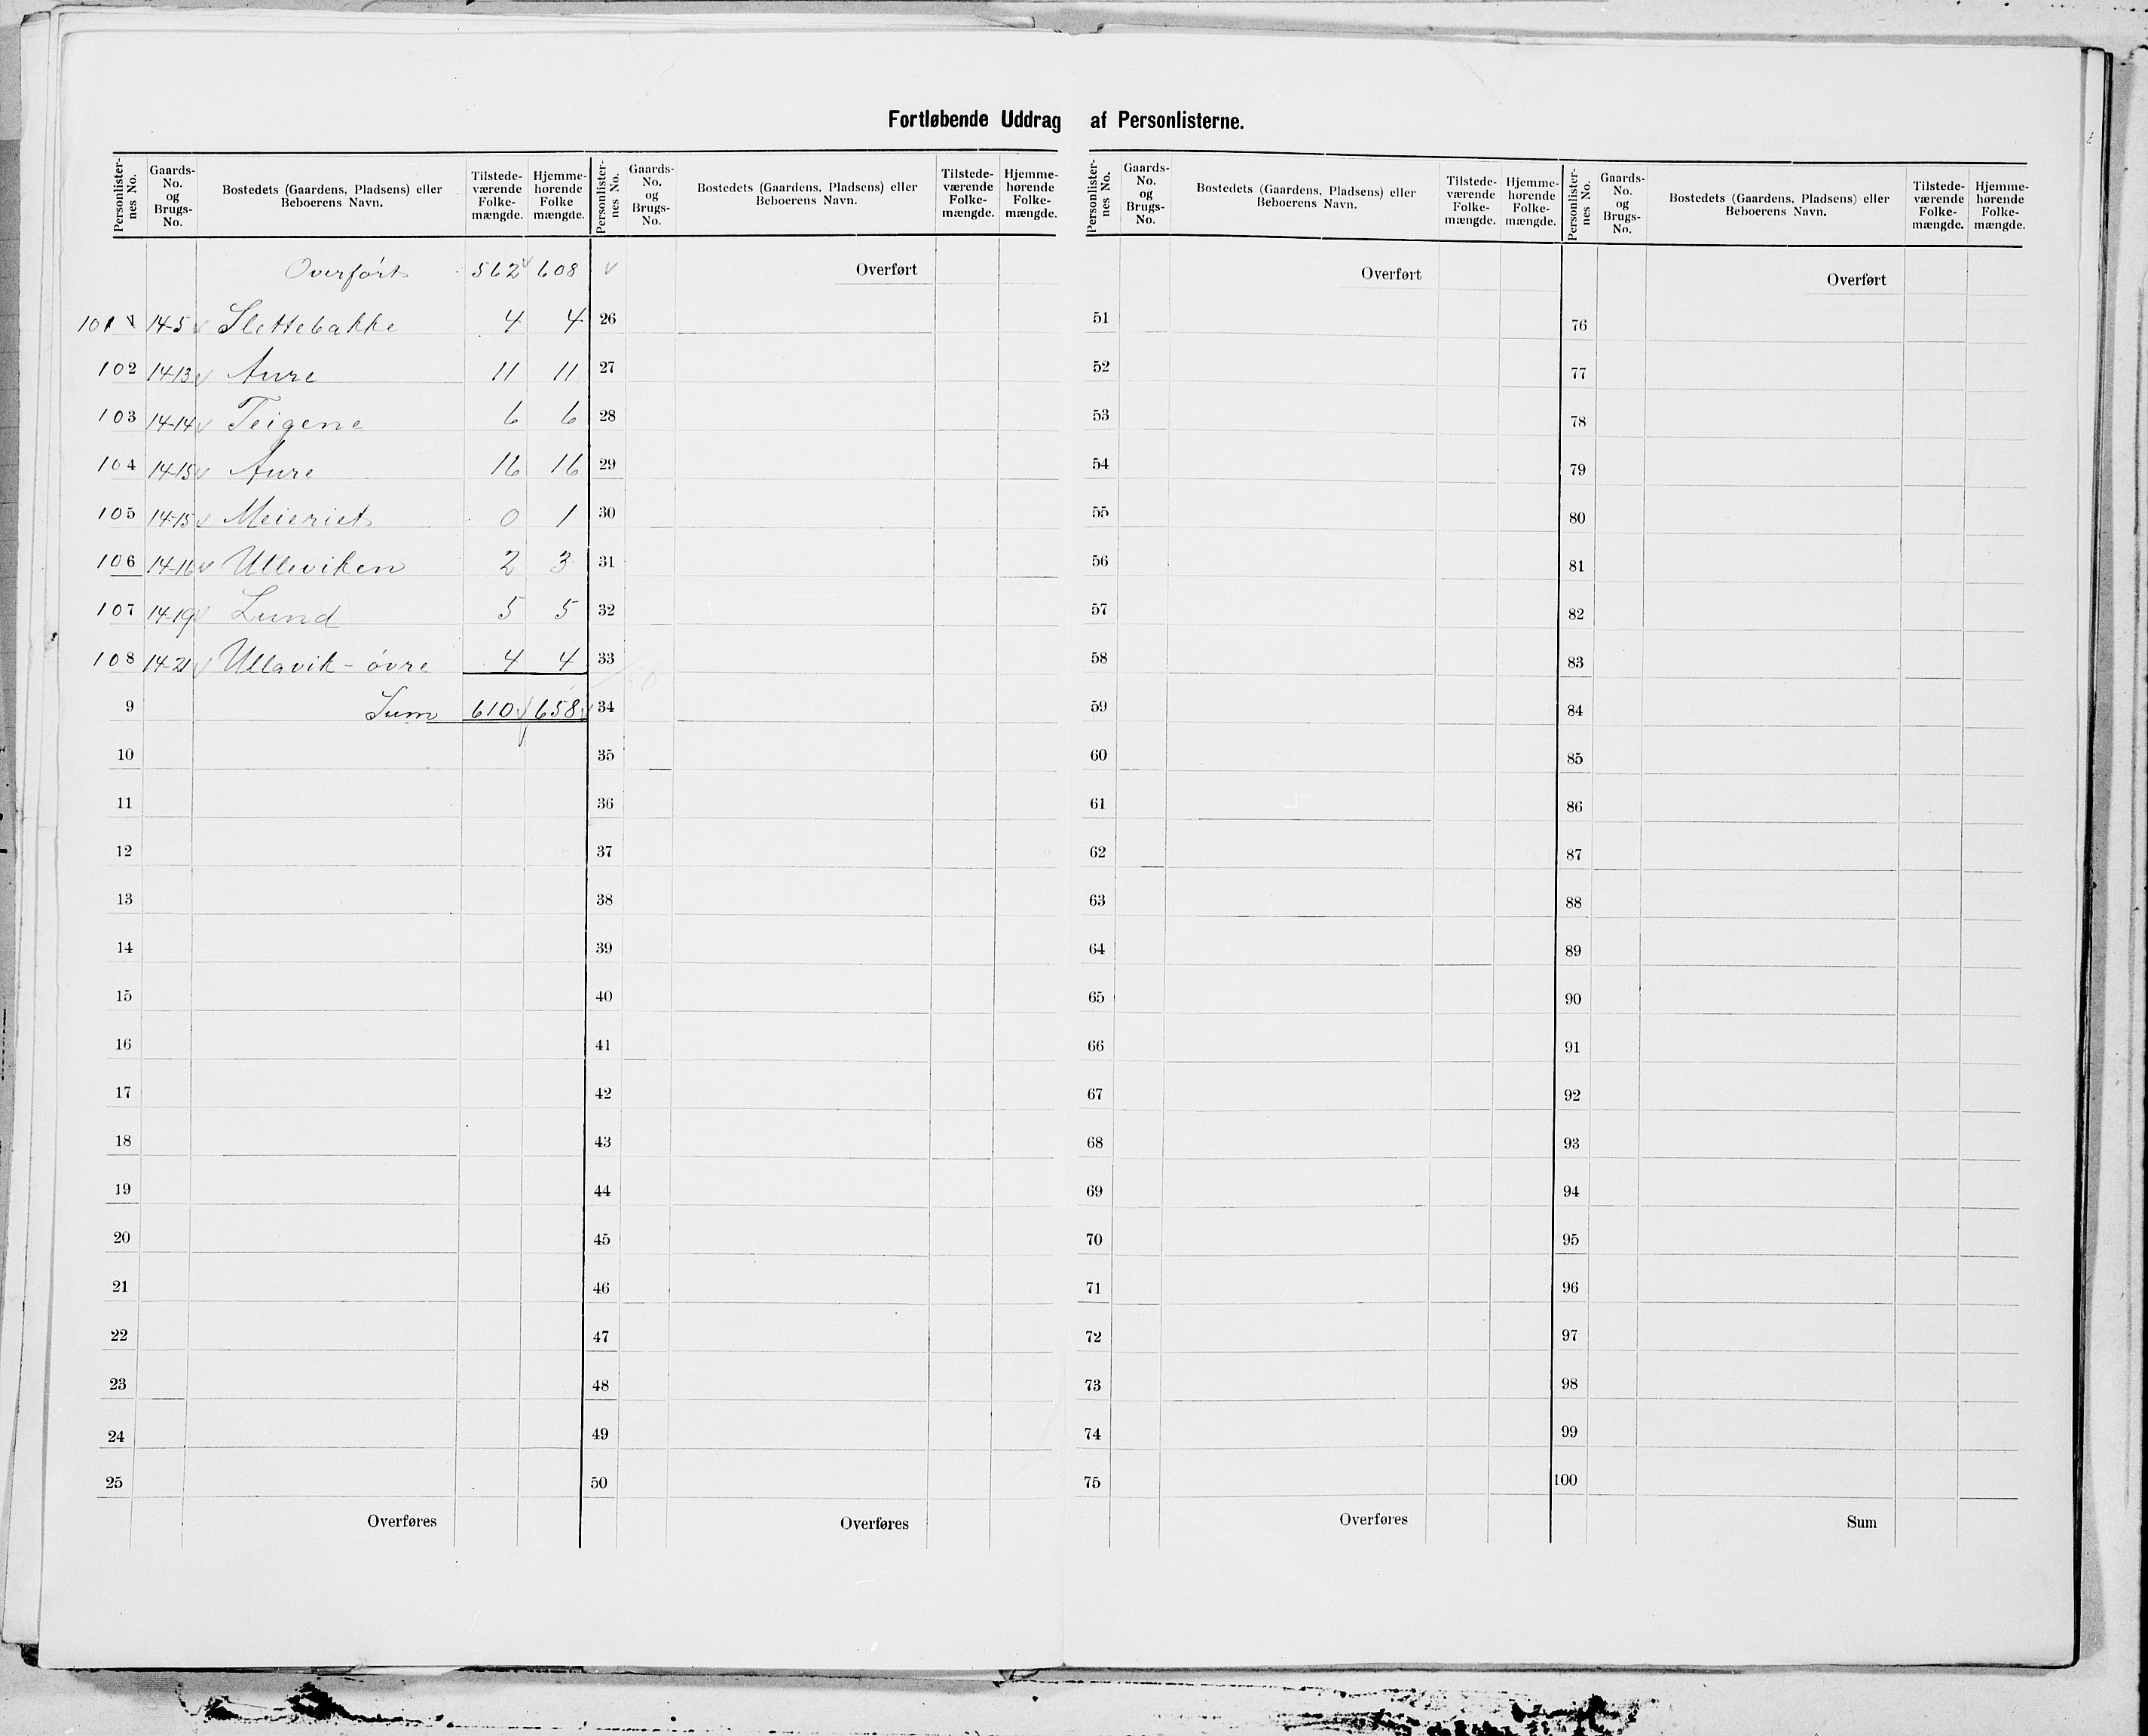 Fortløbende Uddrag af Personlisterne.
Personlister-
nes No.
Gaards-
No.
og
Brugs-
No.
Bostedets (Gaardens, Pladsens) eller
Beboerens Navn.
Tilstede-
værende
Folke-
mængde.
Hjemme-
hørende
Folke
mængde.
Overført 562 608
101 14-5 Slettebakke 4 4
102 14-13 Aure 11 11
103 14-14 Teigene 6 6
104 14-15 Aure 16 16
105 14-15 Meieriet 0 1
106 14-16 Ulleviken 2 3
107 14-19 Lund 5 5
108 14-21 Ullavik - øvre 4 4
9 Sum 610 658
10
11
12
13
14
15
16
17
18
19
20
21
22
23
24
25
Overføres
Personlister-
nes No.
Gaards-
No.
og
Brugs-
No.
Bostedets (Gaardens, Pladsens) eller
Beboerens Navn.
Tilstede-
værende
Folke-
mængde.
Hjemme-
hørende
Folke-
mængde.
Overført
26
27
28
29
30
31
32
33
34
35
36
37
38
39
40
41
42
43
44
45
46
47
48
49
50
Overføres
Personlister-
nes No.
Gaards-
No.
og
Brugs-
No.
Bostedets (Gaardens, Pladsens) eller
Beboerens Navn.
Tilstede-
værende
Folke-
mængde.
Hjemme-
hørende
Folke-
mængde.
Overført
51
52
53
54
55
56
57
58
59
60
61
62
63
64
65
66
67
68
69
70
71
72
73
74
75
Overføres
Personlister-
nes No.
Gaards-
No.
og
Brugs-
No.
Bostedets (Gaardens, Pladsens) eller
Beboerens Navn.
Tilstede-
værende
Folke-
mængde.
Hjemme-
hørende
Folke-
mængde.
Overført
76
77
78
79
80
81
82
83
84
85
86
87
88
89
90
91
92
93
94
95
96
97
98
99
100
Sum